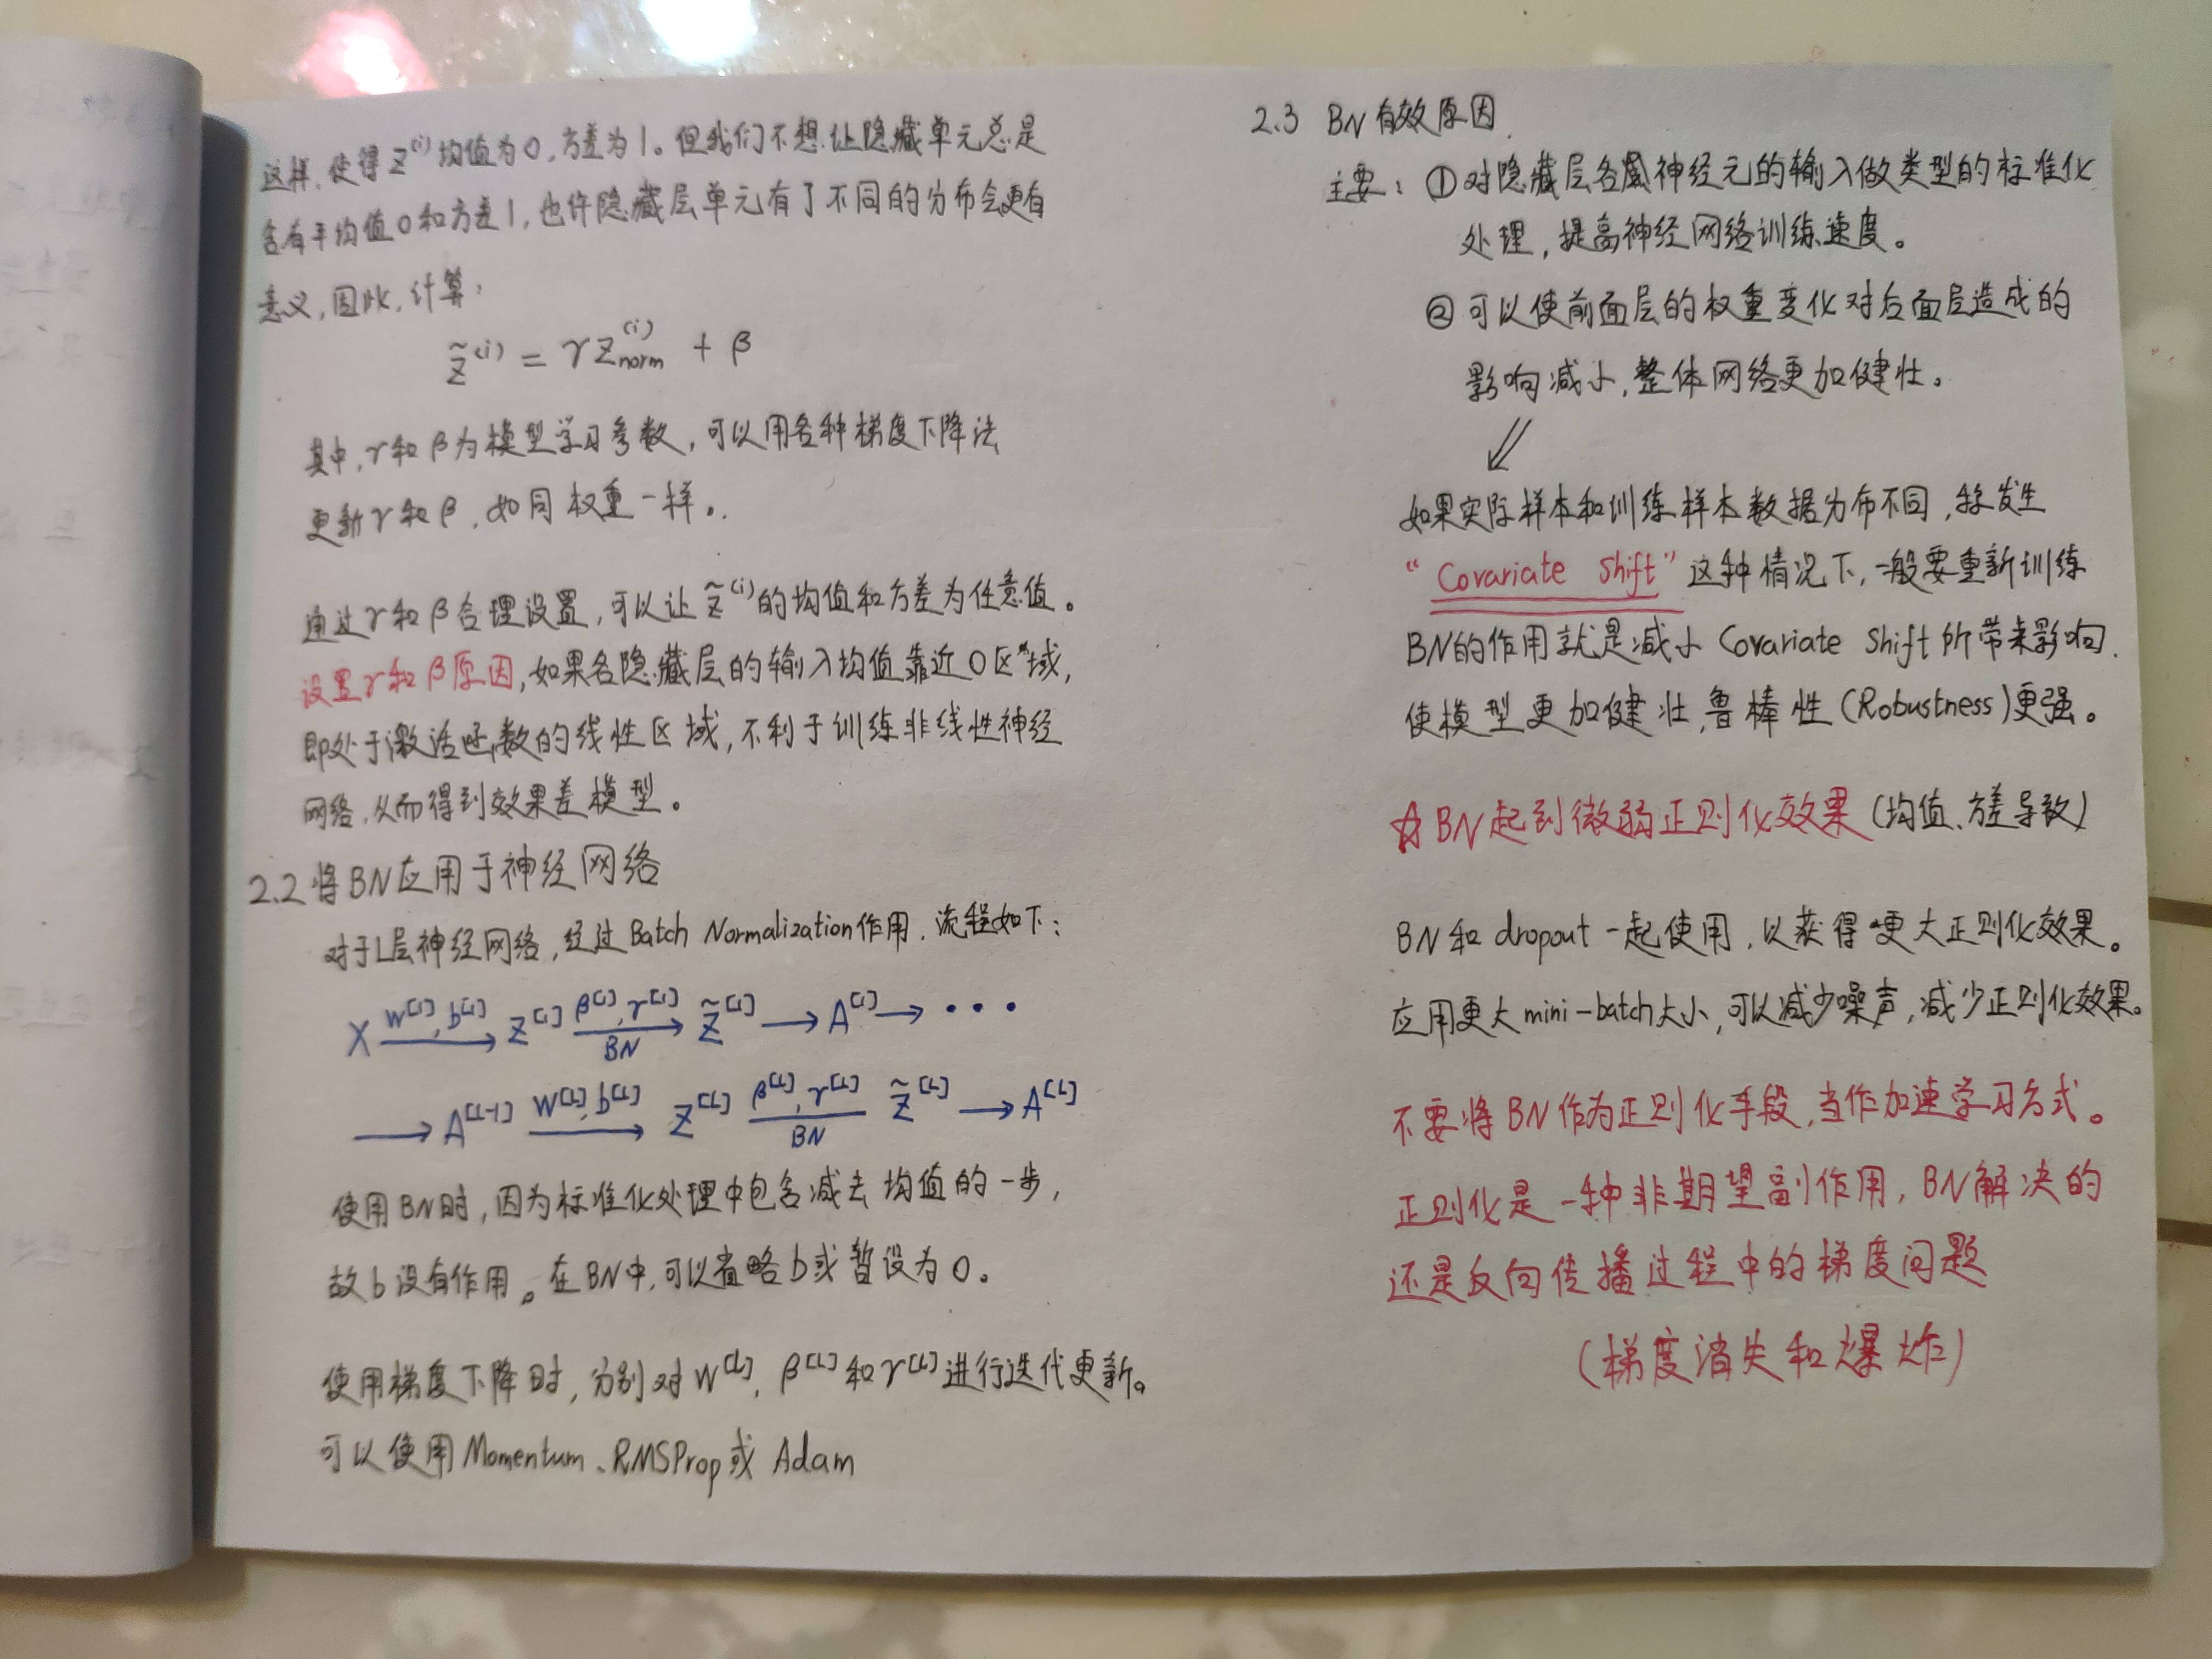 这样,使得 z⁽ⁱ⁾均值为0,方差为1。但我们不想让隐藏单元总是
含有平均值0和方差1,也许隐藏层单元有了不同的分布会更有
意义,因此,计算:
z̃⁽ⁱ⁾ = γ z⁽ⁱ⁾norm + β
其中,γ和β为模型学习参数,可以用各种梯度下降法
更新γ和β,如同权重一样。
通过γ和β合理设置,可以让 z̃⁽ⁱ⁾的均值和方差为任意值。
设置γ和β原因,如果各隐藏层的输入均值靠近0区域,
即处于激活函数的线性区域,不利于训练非线性神经
网络,从而得到效果差模型。
2.2 将BN应用于神经网络
对于L层神经网络,经过Batch Normalization作用,流程如下:
X —W^[1], b^[1]→ Z^[1] —β^[1], γ^[1] BN→ Z̃^[1] → A^[1] → ...
→ A^[L-1] —W^[L], b^[L]→ Z^[L] —β^[L], γ^[L] BN— Z̃^[L] → A^[L]
使用BN时,因为标准化处理中包含减去均值的一步,
故b没有作用。在BN中,可以省略b或暂设为0。
使用梯度下降时,分别对W^[L], β^[L]和γ^[L]进行迭代更新。
可以使用Momentum、RMSProp或 Adam
2.3 BN有效原因
主要:①对隐藏层各神经元的输入做类型的标准化
处理,提高神经网络训练速度。
②可以使前面层的权重变化对后面层造成的
影响减小,整体网络更加健壮。
如果实际样本和训练样本数据分布不同,称发生
“Covariate Shift”这种情况下,一般要重新训练
BN的作用就是减小 Covariate Shift所带来影响.
使模型更加健壮,鲁棒性(Robustness)更强。
☆BN起到微弱正则化效果(均值、方差导致)
BN和 dropout 一起使用,以获得更大正则化效果。
应用更大mini-batch大小,可以减少噪声,减少正则化效果。
不要将BN作为正则化手段,当作加速学习方式。
正则化是一种非期望副作用,BN解决的
还是反向传播过程中的梯度问题
(梯度消失和爆炸)